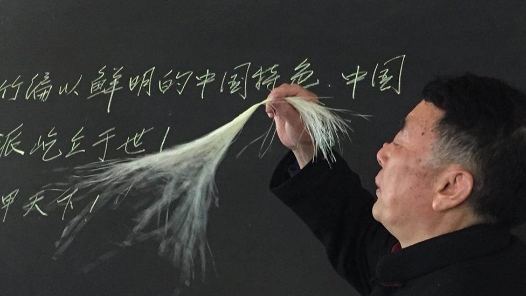 竹编以鲜明的中国特色.中国
派屹立于世!
甲天下!